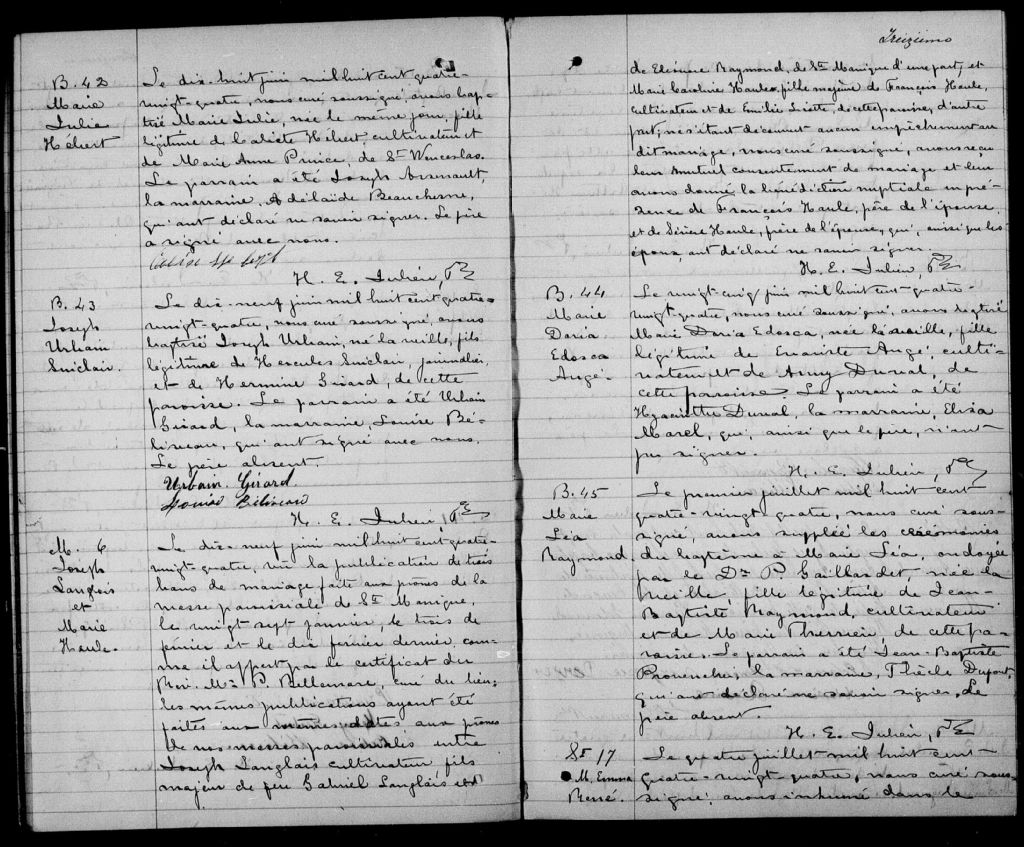 B. 42
Marie
Julie
Hébert
Le dix-huit juin mil huit cent quatre-
vingt-quatre, nous curé soussigné, avons bap-
tisé Marie Julie, née le même jour, fille
légitime de Calixte Hébert, cultivateur et
de Marie Anne Prince de St Wenceslas.
Le parrain a été Joseph Arsenault,
la marraine, Adélaïde Beauchesne,
qui ont déclaré ne savoir signer. Le père
a signé avec nous.
H. E. Julien, Ptre
B. 43
Joseph
Urbain
Sinclair.
Le dix-neuf juin mil huit cent quatre-
vingt-quatre, nous curé soussigné, avons
baptisé Joseph Urbain, né la veille, fils
légitime de Hercules Sinclair, journalier,
et de Hermine Girard, de cette
paroisse. Le parrain a été Urbain
Girard, la marraine, Louise Bé-
liveau, qui ont signé avec nous.
Le père absent.
Urbain Girard
Louise Béliveau
H. E. Julien, Ptre
M. 6
Joseph
Langlois
et
Marie
Houle.
Le dix-neuf juin mil huit cent quatre-
vingt-quatre, vu la publication de trois
bans de mariage faite aux prônes de la
messe paroissiale de Ste Monique,
le vingt sept janvier, le trois de
février et le dix février dernier, com-
me il appert par le certificat du
Rév. Mr P. Bellemare, curé du lieu,
les mêmes publications ayant été
faites aux mêmes dates aux prônes
de nos messes paroissiales entre
Joseph Langlois cultivateur, fils
majeur de feu Gabriel Langlois et
Treizième
de Eléonore Raymond, de Ste Monique d'une part, et
Marie Caroline Houle, fille majeure de François Houle,
cultivateur et de Emilie, de cette paroisse, d'autre
part, ne s'étant découvert aucun empêchement au
dit mariage, nous curé soussigné, avons reçu
leur mutuel consentement de mariage et leur
avons donné la bénédiction nuptiale en pré-
sence de François Houle, père de l'épouse,
et de Désiré Houle, frère de l'épouse, qui, ainsi que les
époux ont déclaré ne savoir signer.
H. E. Julien, Ptre
B. 44
Marie
Doria
Edosca
Angé.
Le vingt-cinq juin mil huit cent-quatre-
vingt-quatre, nous curé soussigné, avons baptisé
Marie Doria Edosca, née la veille, fille
légitime de Evariste Angé, culti-
vateur et de Amy Duval, de
cette paroisse. Le parrain a été
Hyacinthe Duval, la marraine, Eliza
Morel, qui, ainsi que le père, n'ont
pu signer.
H. E. Julien, Ptre
B. 45
Marie
Léa
Raymond
Le premier juillet mil huit cent
quatre-vingt-quatre, nous curé sous-
signé, avons suppléé les cérémonies
du baptême à Marie Léa, ondoyée
par le Dr P. Gaillardet, née la
veille, fille légitime de Jean-
Baptiste Raymond, cultivateur
et de Marie Therrien, de cette pa-
roisse. Le parrain a été Jean-Baptiste
Provencher, la marraine, Thècle Dupont,
qui ont déclaré ne savoir signer. Le
père absent.
H. E. Julien, Ptre
St 17
M. Emma
Le quatre juillet mil huit cent-
quatre-vingt-quatre, nous curé sous-
signé, avons inhumé dans le